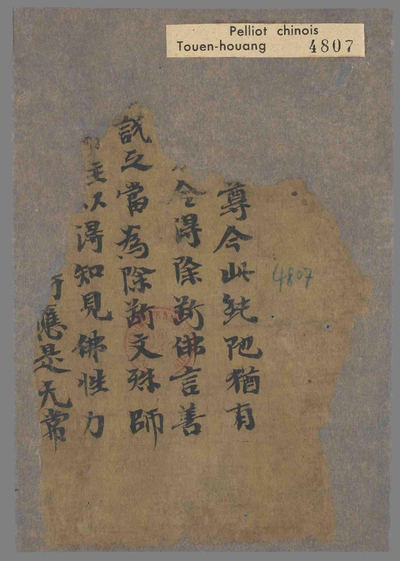 Pelliot chinois
Touen-houang 4807
尊今此純陀猶有
令得除断佛言善
説之當為除断文殊師
住以得知見佛性力
時應是无常
4807